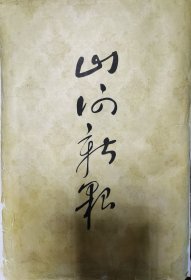 山河新貌